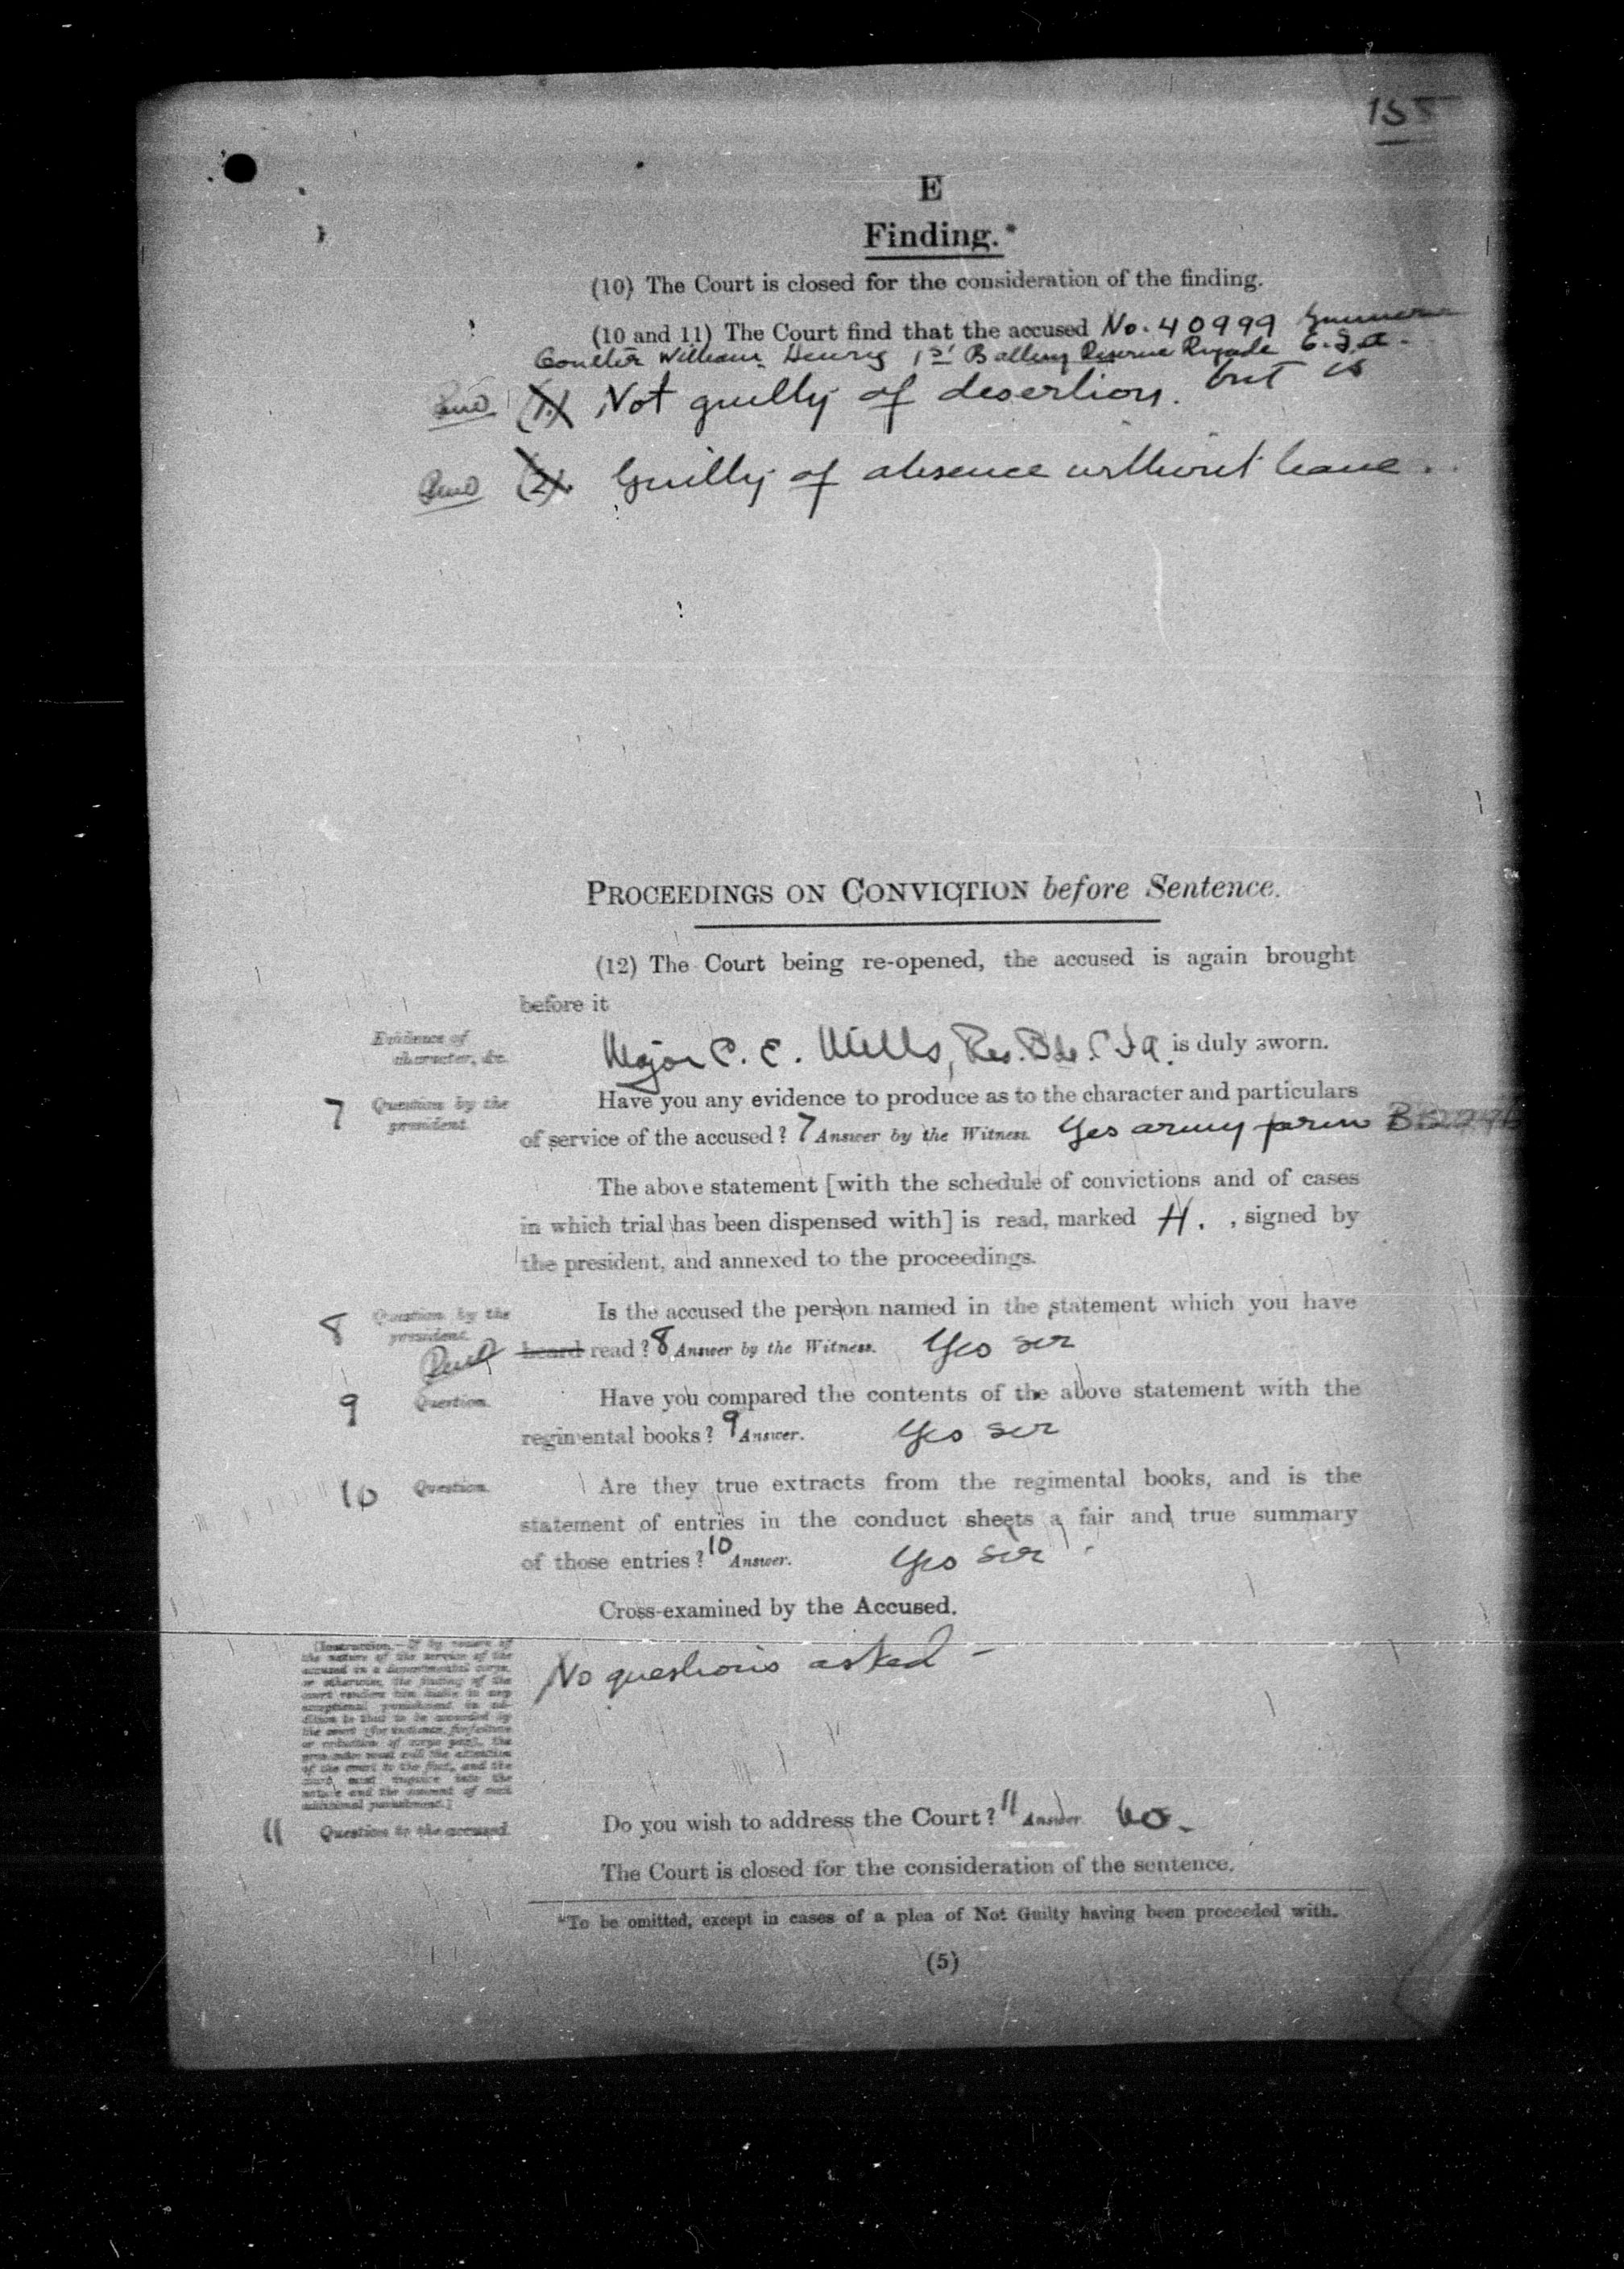 155
E
Finding.*
(10) The Court is closed for the consideration of the finding.
(10 and 11) The Court find that the accused No. 40999 Gunner
Coulter William Henry 1st Battery Reserve Brigade C.F.A.
(1.) Not guilty of desertion. but is
(2). Guilty of absence without leave.
PROCEEDINGS ON CONVICTION before Sentence.
(12) The Court being re-opened, the accused is again brought
before it
Evidence of
character, &c.
Major C. E. Mills, Res. Bde. C.F.A. is duly sworn.
7 Question by the
president.
Have you any evidence to produce as to the character and particulars
of service of the accused? 7 Answer by the Witness. Yes army form
The above statement [with the schedule of convictions and of cases
in which trial has been dispensed with] is read, marked H. , signed by
the president, and annexed to the proceedings.
8 Question by the
president.
Is the accused the person named in the statement which you have
heard read? 8 Answer by the Witness. Yes sir
9 Question.
Have you compared the contents of the above statement with the
regimental books? 9 Answer. Yes sir
10 Question.
Are they true extracts from the regimental books, and is the
statement of entries in the conduct sheets a fair and true summary
of those entries? 10 Answer. Yes sir
Cross-examined by the Accused.
No questions asked -
[Instruction.—If by reason of
the nature of the service of the
accused in a departmental corps,
or otherwise, the finding of the
court renders him liable to any
exceptional punishment in ad-
dition to that to be awarded by
the court (for instance, forfeiture
or reduction of corps pay), the
prosecutor must call the attention
of the court to the fact, and the
court must enquire into the
nature and the amount of such
additional punishment.]
11 Question to the accused.
Do you wish to address the Court? 11 Answer No.
The Court is closed for the consideration of the sentence.
*To be omitted, except in cases of a plea of Not Guilty having been proceeded with.
(5)